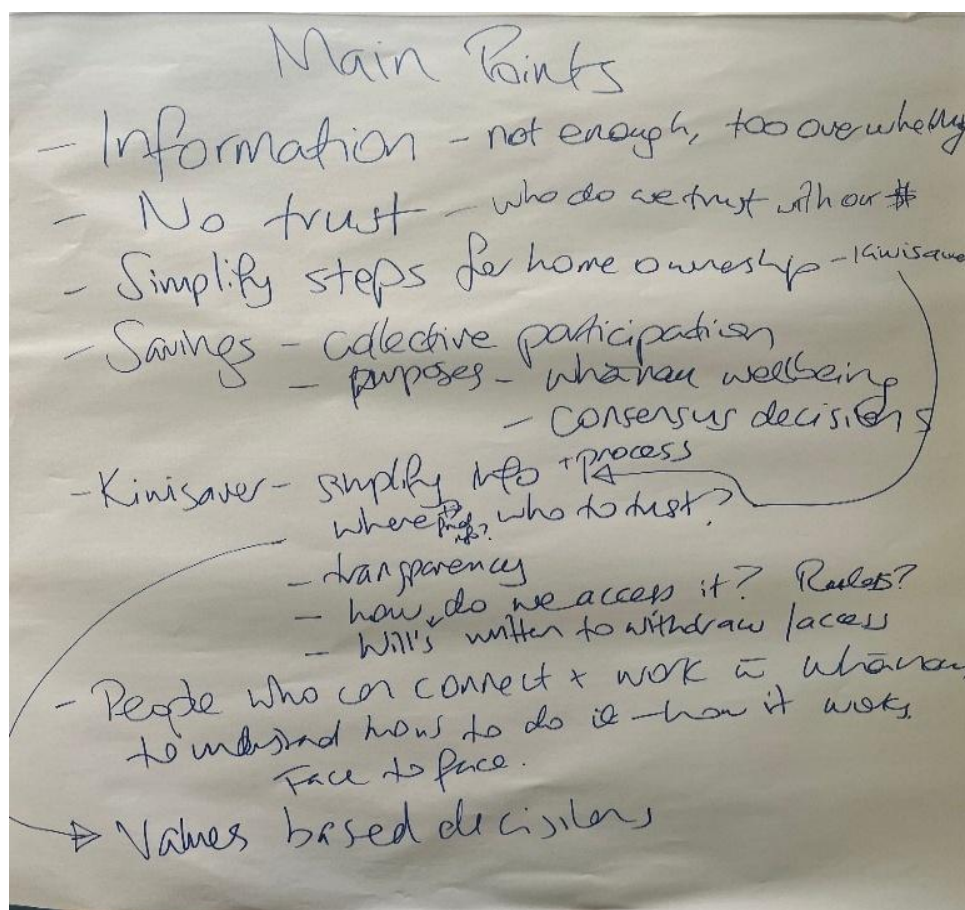 Main Points
- Information - not enough, too overwhelming
- No trust - who do we trust with our $
- Simplify steps for home ownership - Kiwisaver
- Savings - collective participation
- purposes - whānau wellbeing
- consensus decisions
- Kiwisaver - simplify info + process
where to find info? who to trust?
- transparency
- how do we access it? Rules?
- Will's written to withdraw / access
- People who can connect + work c̄ whānau
to understand how to do it - how it works.
Face to face.
Values based decisions